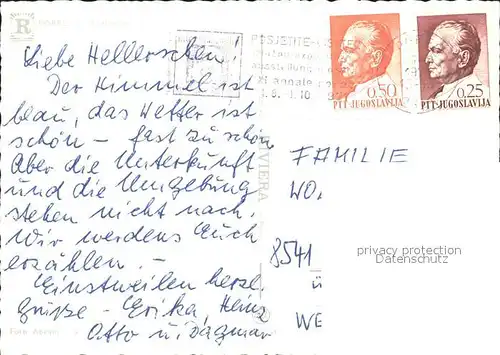 R
Liebe Hellerschen!
Der Himmel ist
blau, das Wetter ist
schön – fast zu schön
Aber die Unterkunft
und die Umgebung
stehen nicht nach.
Wir werdens Euch
erzählen. –
Einstweilen herzl.
Grüße – Erika, Heinz
Otto u. Dagmar
RIVIERA
POSJETITE
0.50
PTT-JUGOSLAVIJA
0.25
PTT-JUGOSLAVIJA
FAMILIE
WO
8541
privacy protection
Datenschutz
WE